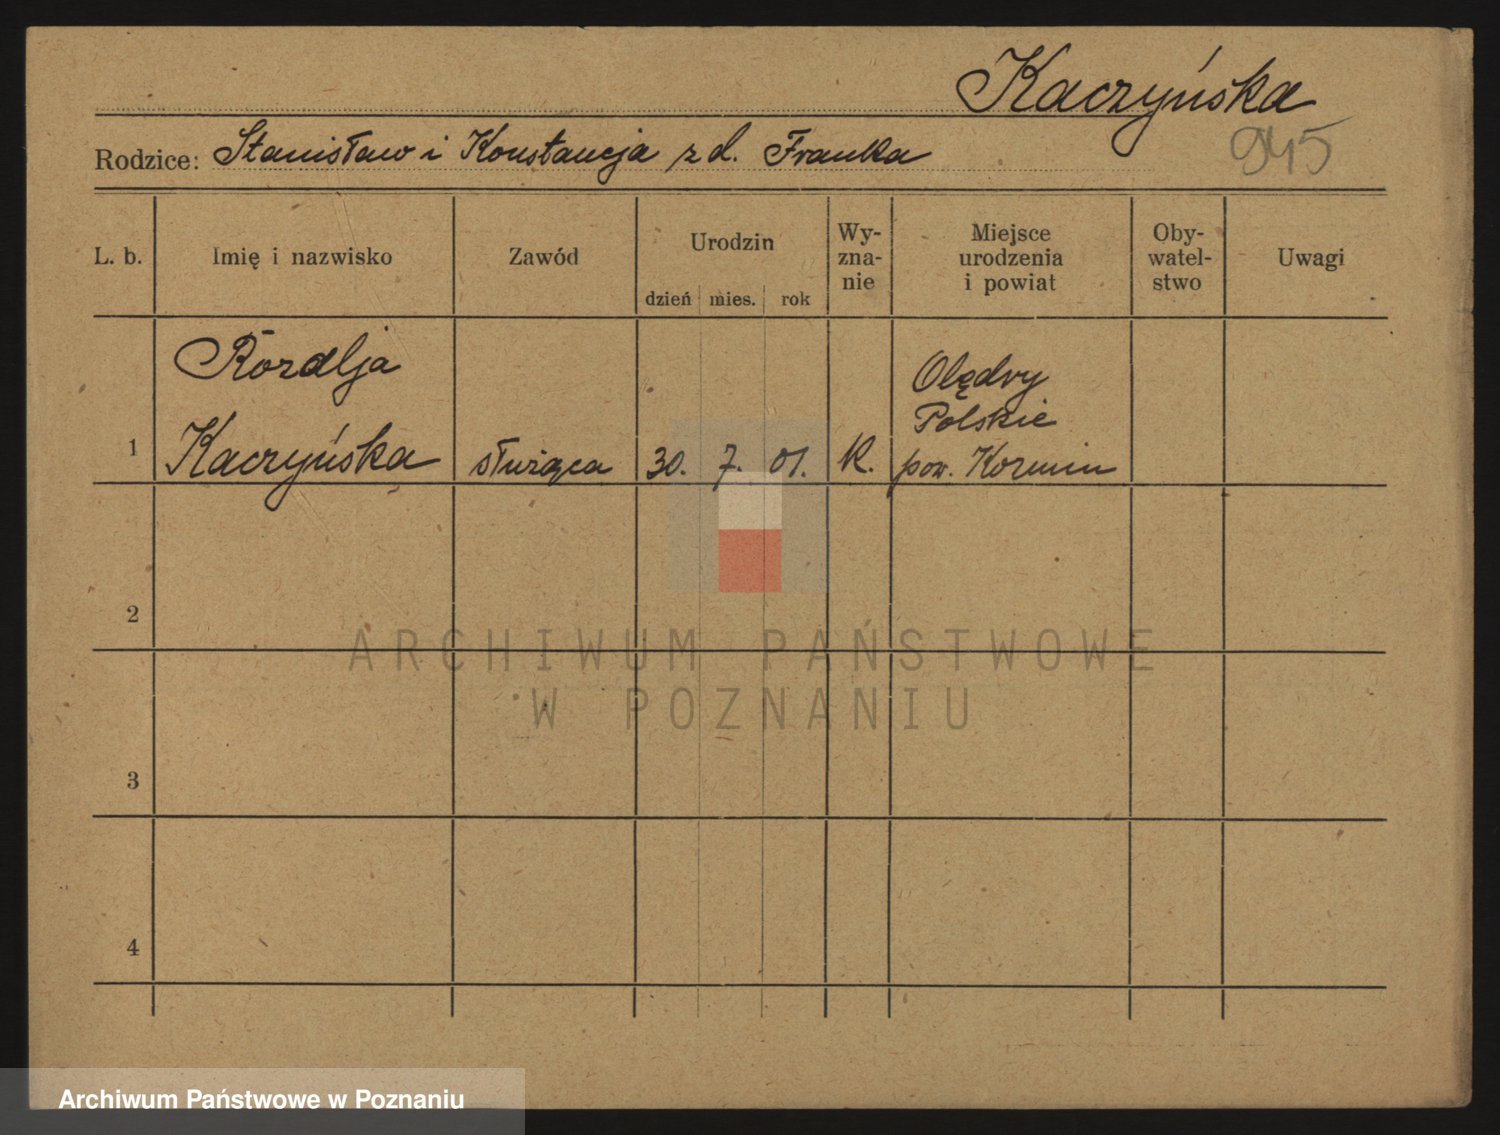 Kaczyńska
945
Rodzice: Stanisław i Konstancja z d. Franka
L. b.
Imię i nazwisko
Zawód
Urodzin
dzień mies. rok
Wy-
zna-
nie
Miejsce
urodzenia
i powiat
Oby-
watel-
stwo
Uwagi
1
Rozalja
Kaczyńska
służąca
30. 7. 01.
K.
Olędry
Polskie
pow. Kozmin
2
3
4
ARCHIWUM PAŃSTWOWE
W POZNANIU
Archiwum Państwowe w Poznaniu